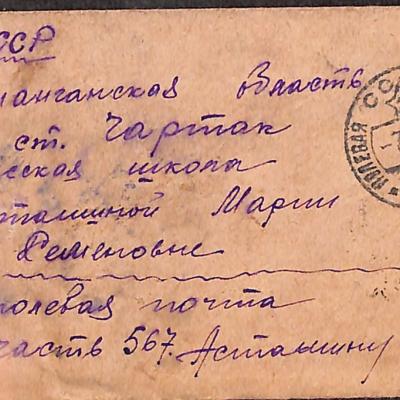 ССР
манганская область
ст. Чартак
сская школа
сташиной Марии
Семеновне
полевая почта
часть 567. Асташину
ПОЛЕВАЯ
ССС